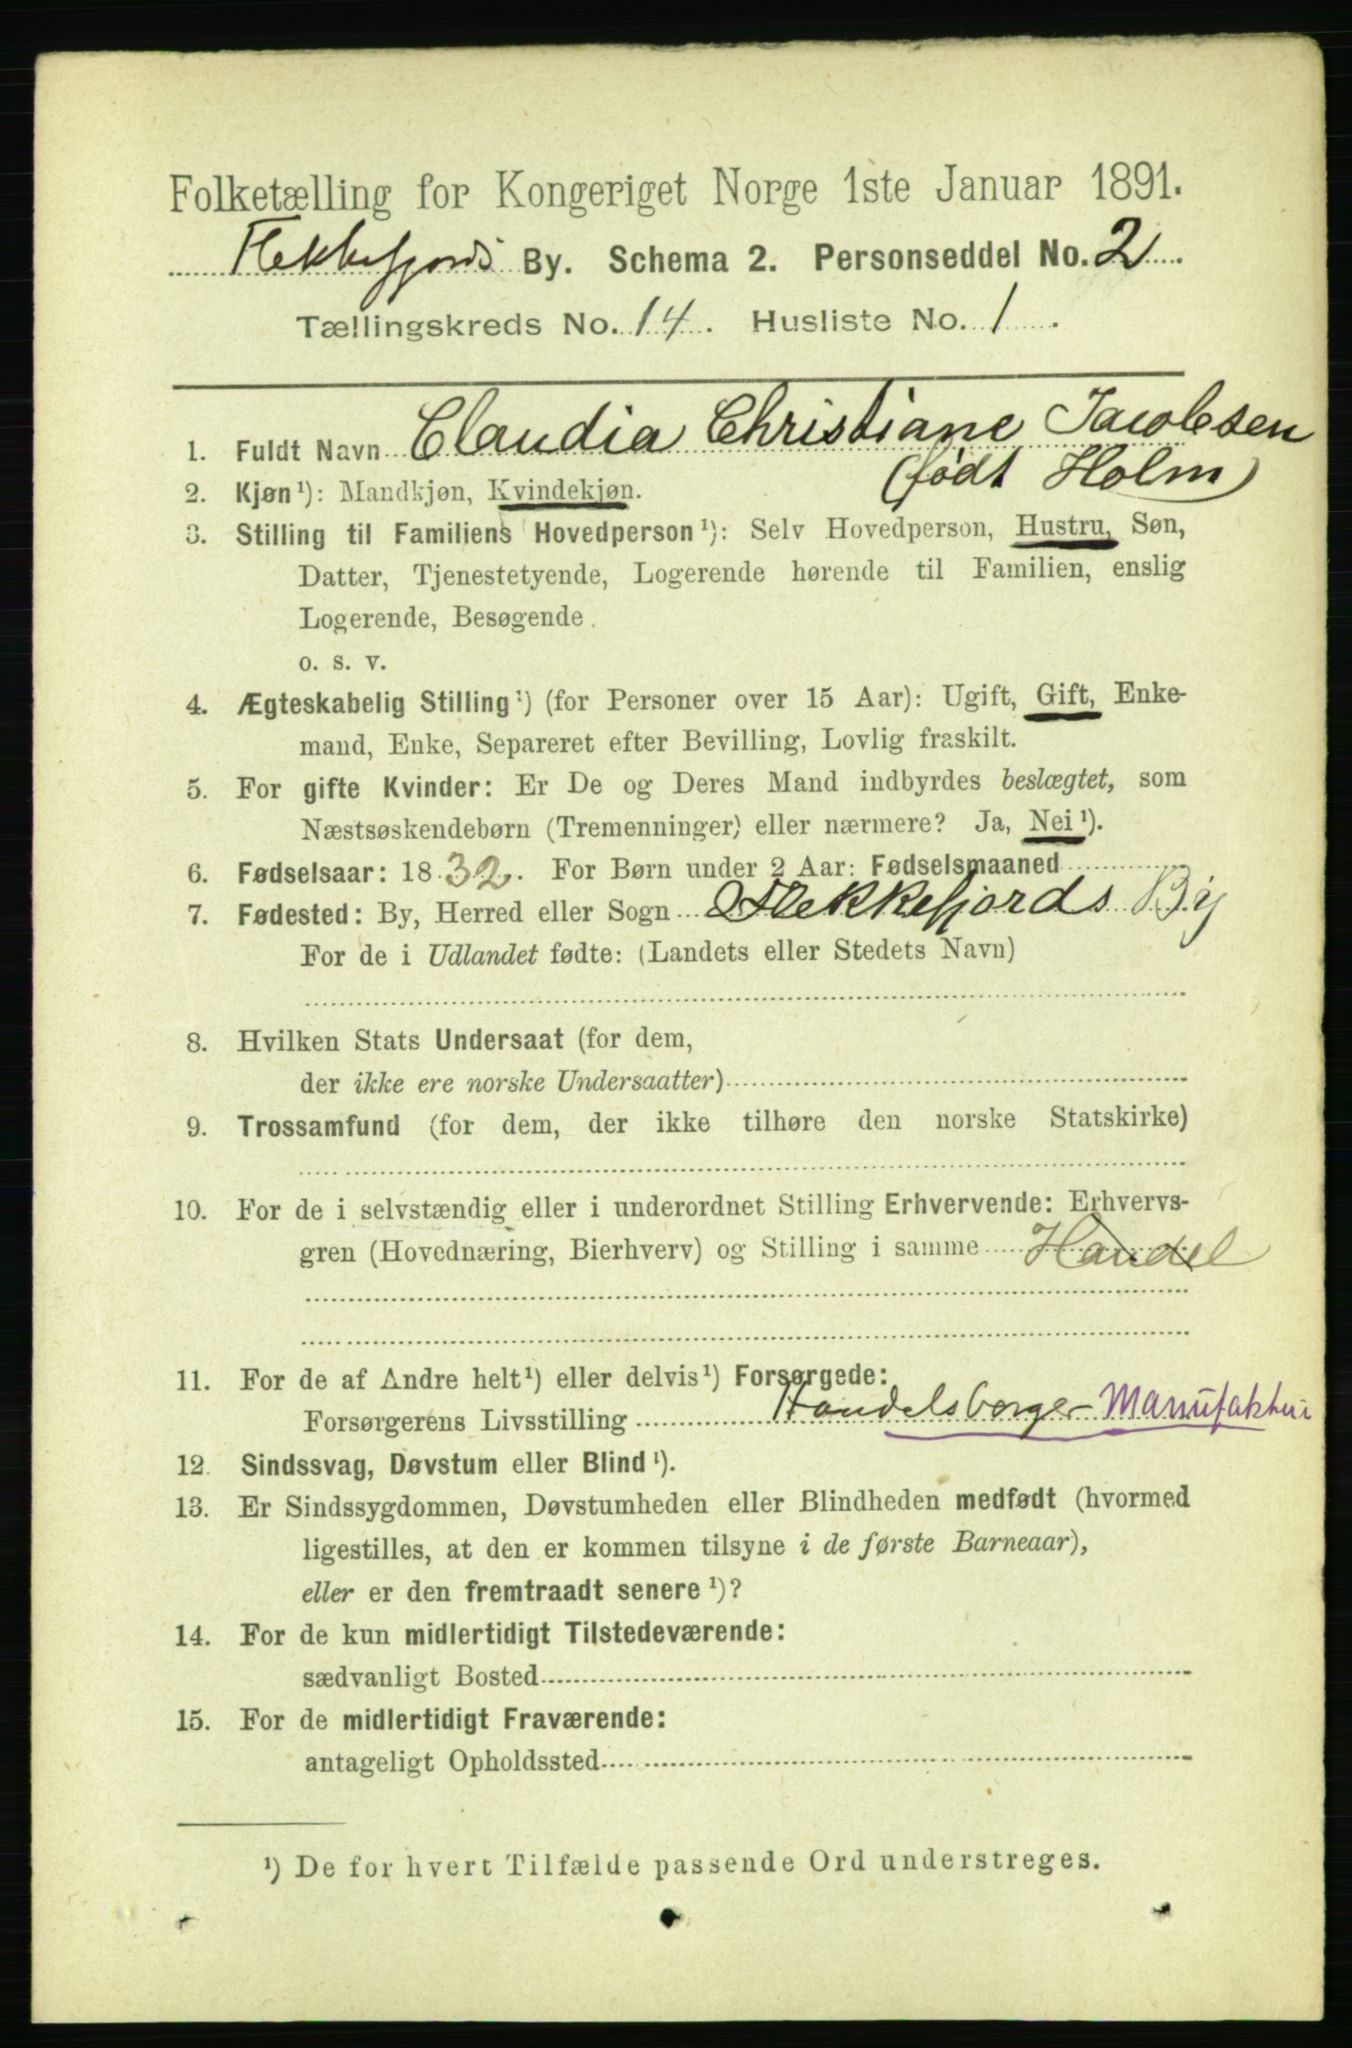 Folketælling for Kongeriget Norge 1ste Januar 1891.
Flekkefjords By. Schema 2. Personseddel No. 2
Tællingskreds No. 14. Husliste No. 1.
1. Fuldt Navn Claudia Christiane Jacobsen
(født Holm)
2. Kjøn ¹): Mandkjøn, Kvindekjøn.
3. Stilling til Familiens Hovedperson ¹): Selv Hovedperson, Hustru, Søn,
Datter, Tjenestetyende, Logerende hørende til Familien, enslig
Logerende, Besøgende.
o. s. v.
4. Ægteskabelig Stilling ¹) (for Personer over 15 Aar): Ugift, Gift, Enke-
mand, Enke, Separeret efter Bevilling, Lovlig fraskilt.
5. For gifte Kvinder: Er De og Deres Mand indbyrdes beslægtet, som
Næstsøskendebørn (Tremenninger) eller nærmere? Ja, Nei ¹).
6. Fødselsaar: 1832. For Børn under 2 Aar: Fødselsmaaned
7. Fødested: By, Herred eller Sogn Flekkefjords By
For de i Udlandet fødte: (Landets eller Stedets Navn)
8. Hvilken Stats Undersaat (for dem,
der ikke ere norske Undersaatter)
9. Trossamfund (for dem, der ikke tilhøre den norske Statskirke)
10. For de i selvstændig eller i underordnet Stilling Erhvervende: Erhvervs-
gren (Hovednæring, Bierhverv) og Stilling i samme Handel
11. For de af Andre helt ¹) eller delvis ¹) Forsørgede:
Forsørgerens Livsstilling Handelsborger Manufaktur
12. Sindssvag, Døvstum eller Blind ¹).
13. Er Sindssygdommen, Døvstumheden eller Blindheden medfødt (hvormed
ligestilles, at den er kommen tilsyne i de første Barneaar),
eller er den fremtraadt senere ¹)?
14. For de kun midlertidigt Tilstedeværende:
sædvanligt Bosted
15. For de midlertidigt Fraværende:
antageligt Opholdssted
¹) De for hvert Tilfælde passende Ord understreges.